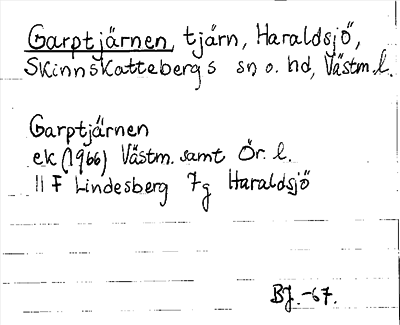 Garptjärnen, tjärn, Haraldsjö,
Skinnskattebergs sn o. hd, Västm. l.
Garptjärnen
ek (1966) Västm. samt Ör. l.
11 F Lindesberg 7g Haraldsjö
BJ. -67.